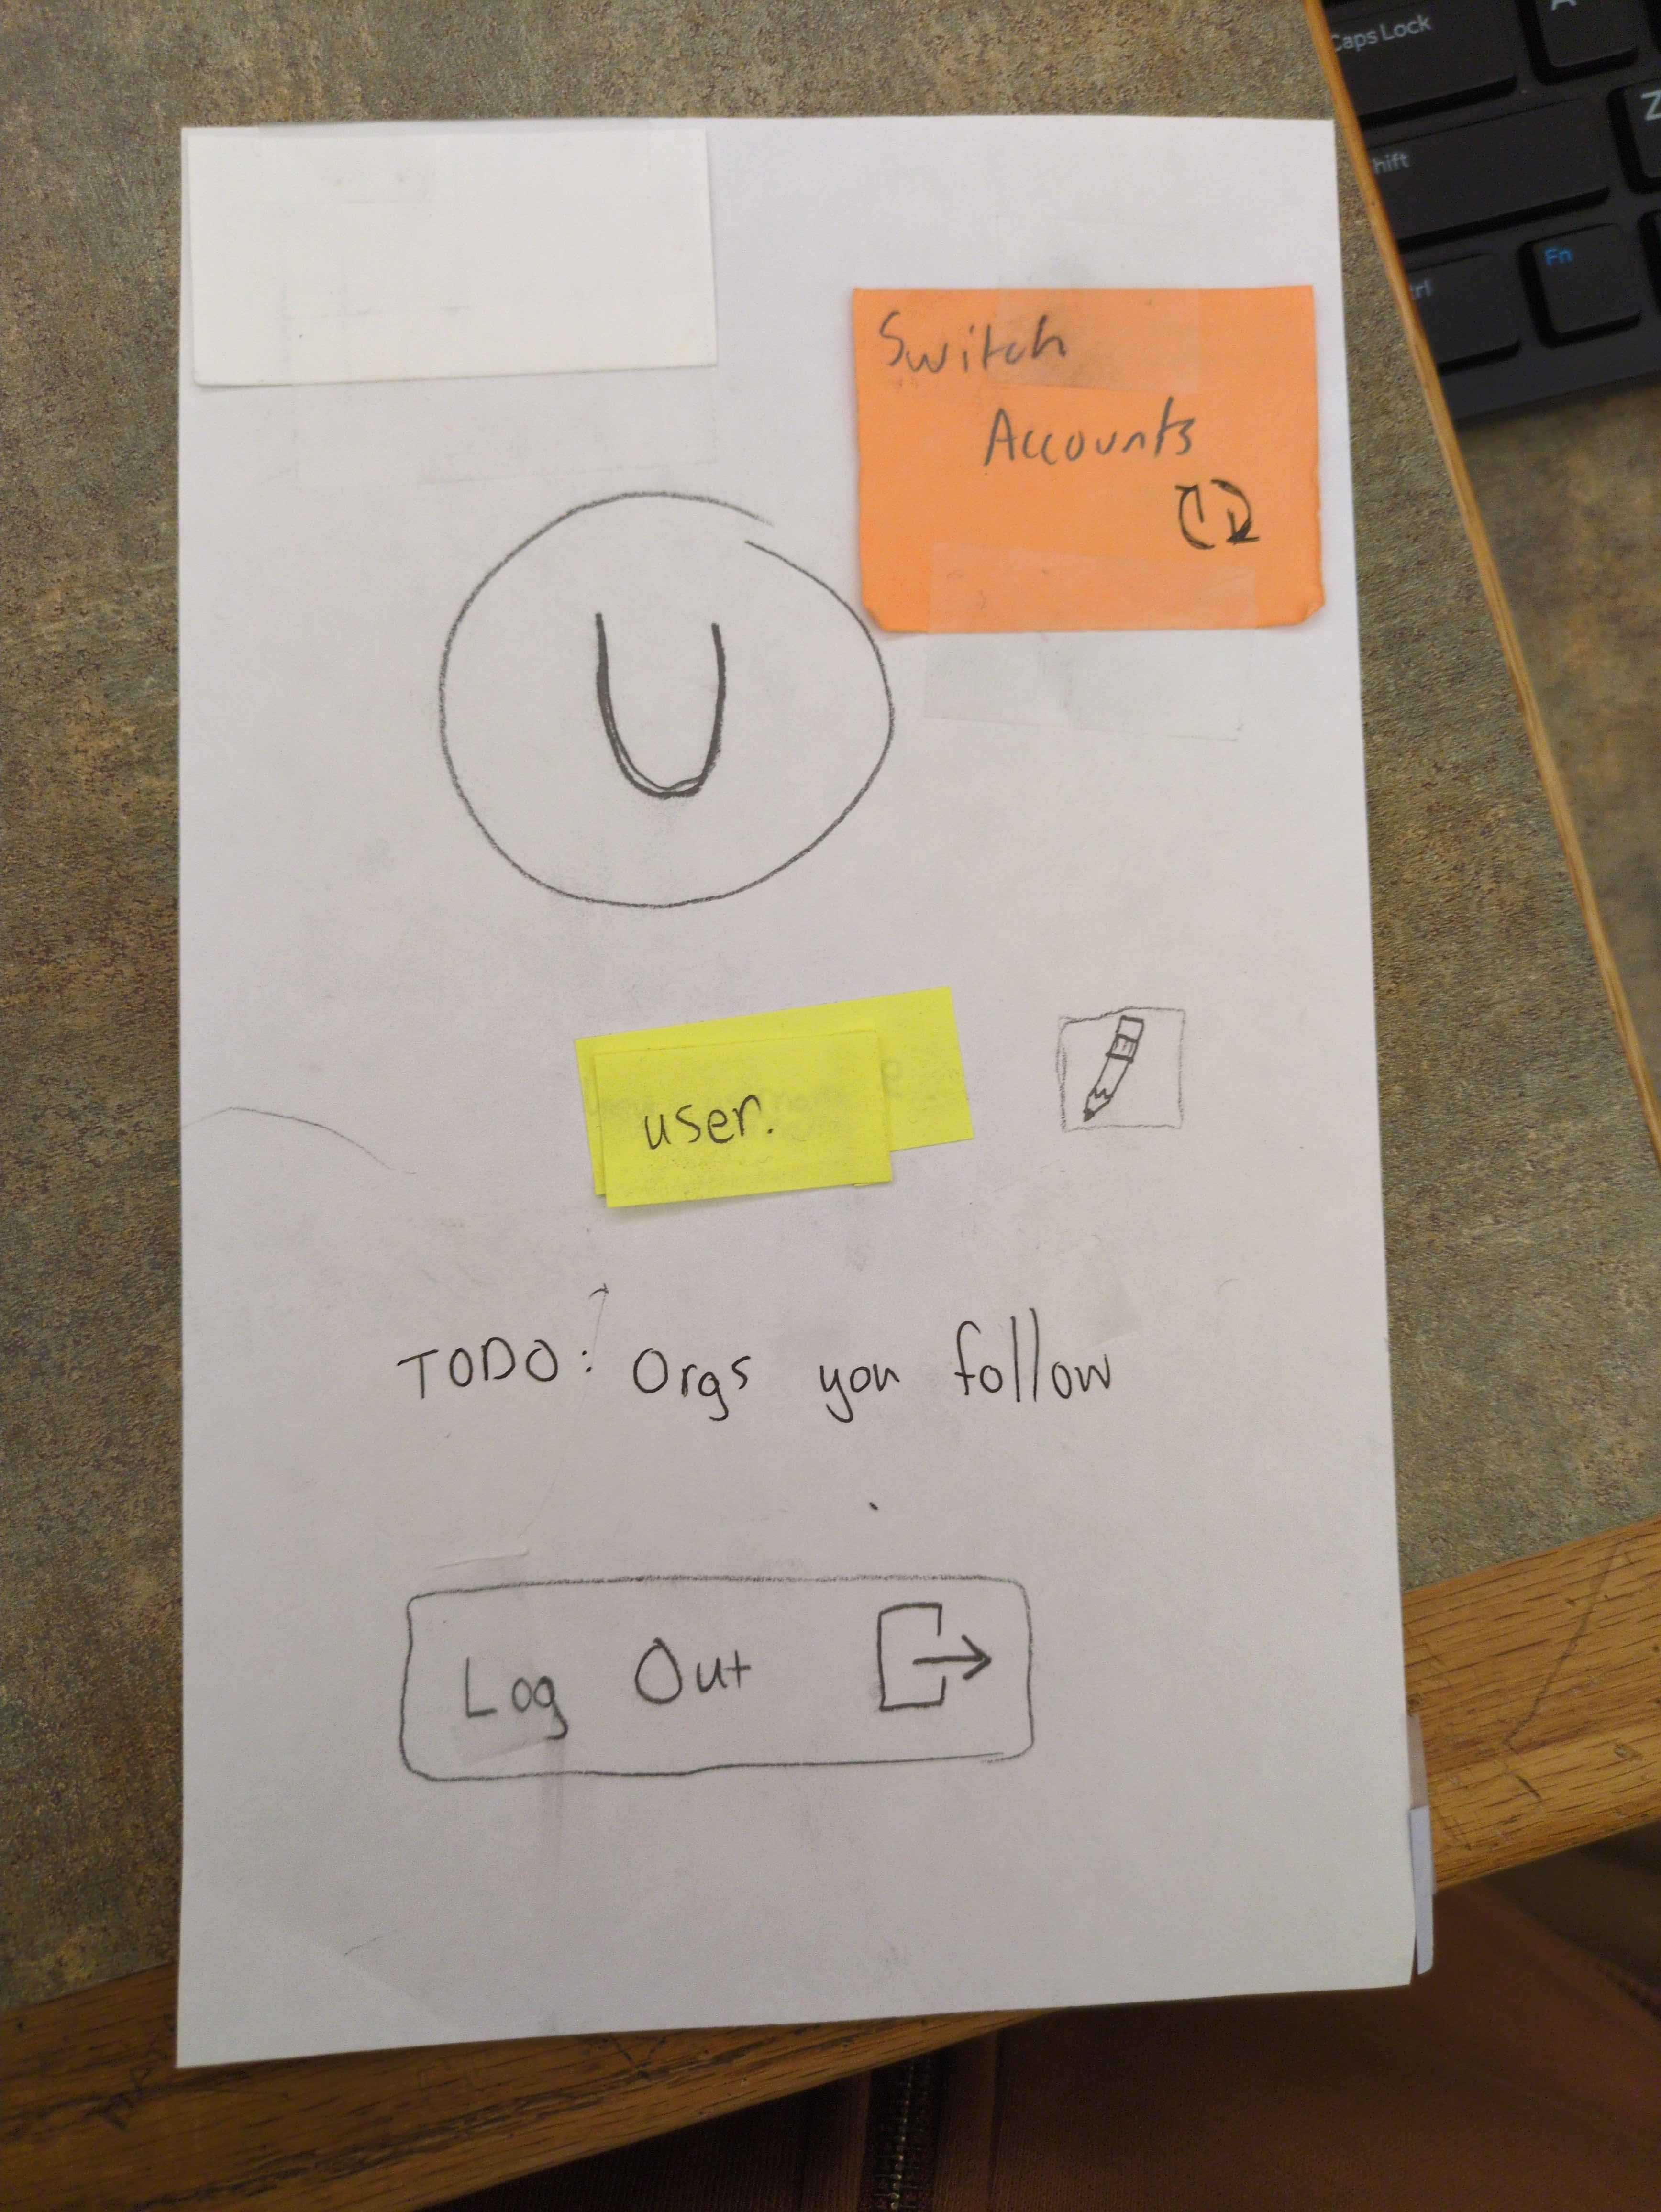 Caps Lock
A
Shift
Z
Fn
Switch
Accounts
U
user.
TODO: Orgs you follow
Log Out